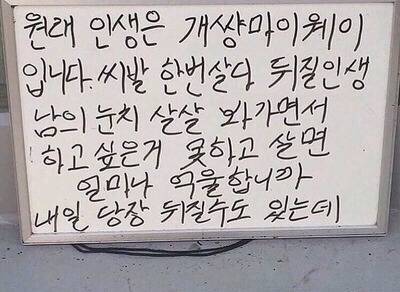 원래 인생은 개썅마이웨이
입니다. 씨발 한번살다 뒤질인생
남의 눈치 살살 봐가면서
하고 싶은거 못하고 살면
얼마나 억울합니까
내일 당장 뒤질수도 있는데